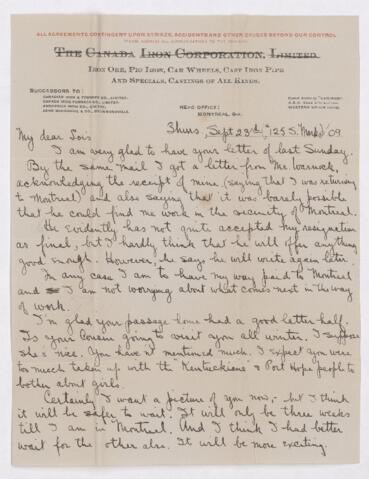 ALL AGREEMENTS CONTINGENT UPON STRIKES, ACCIDENTS AND OTHER CAUSES BEYOND OUR CONTROL
PLEASE ADDRESS ALL COMMUNICATIONS TO THE COMPANY
THE CANADA IRON CORPORATION, LIMITED.
IRON ORE, PIG IRON, CAR WHEELS, CAST IRON PIPE
AND SPECIALS, CASTINGS OF ALL KINDS.
SUCCESSORS TO:
CANADIAN IRON & FOUNDRY CO., LIMITED.
CANADA IRON FURNACE CO., LIMITED.
HEAD OFFICE:
MONTREAL, Qu.
A.B.C. CODE
WESTERN UNION CODE.
Thurs, Sept 23rd, 125 S. '09
My dear Lois
I am very glad to have your letter of last Sunday.
By the same mail I got a letter from Mr. Warnock,
acknowledging the receipt of mine (saying that I was returning
to Montreal) and also saying that it was barely possible
that he could find me work in the vicinity of Montreal.
He evidently has not quite accepted my resignation
as final, but I hardly think that he will offer anything
good enough. However, he says he will write again later.
In any case I am to have my way paid to Montreal
and I am not worrying about what comes next in the way
of work.
I'm glad your passage home had a good latter half.
Is your Cousin going to visit you all winter. I suppose
she's nice. You haven't mentioned much. I expect you were
too much taken up with the Kentuckians & Port Hope people to
bother about girls.
Certainly I want a picture of you now, - but I think
it will be safer to wait. It will only be three weeks
till I am in Montreal. And I think I had better
wait for the other also. It will be more exciting.